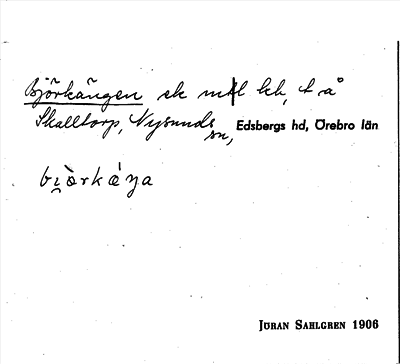 Björkängen ek mtl kb, t å
Skalltorp, Nysunds sn, Edsbergs hd, Örebro län
bi̯ὰrkáŋa
JÖRAN SAHLGREN 1906